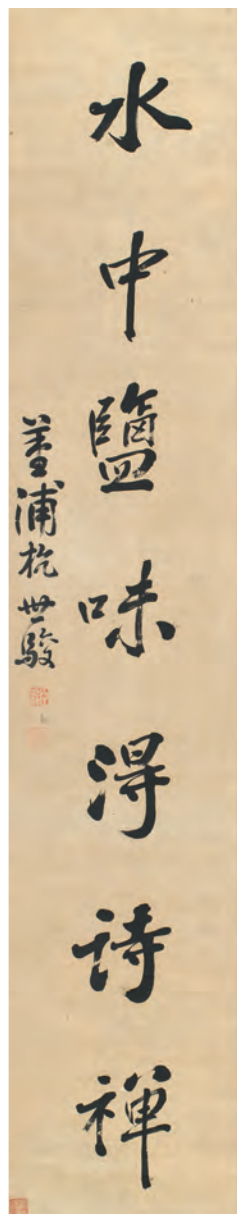 水中鹽味得詩禪
堇浦杭世駿